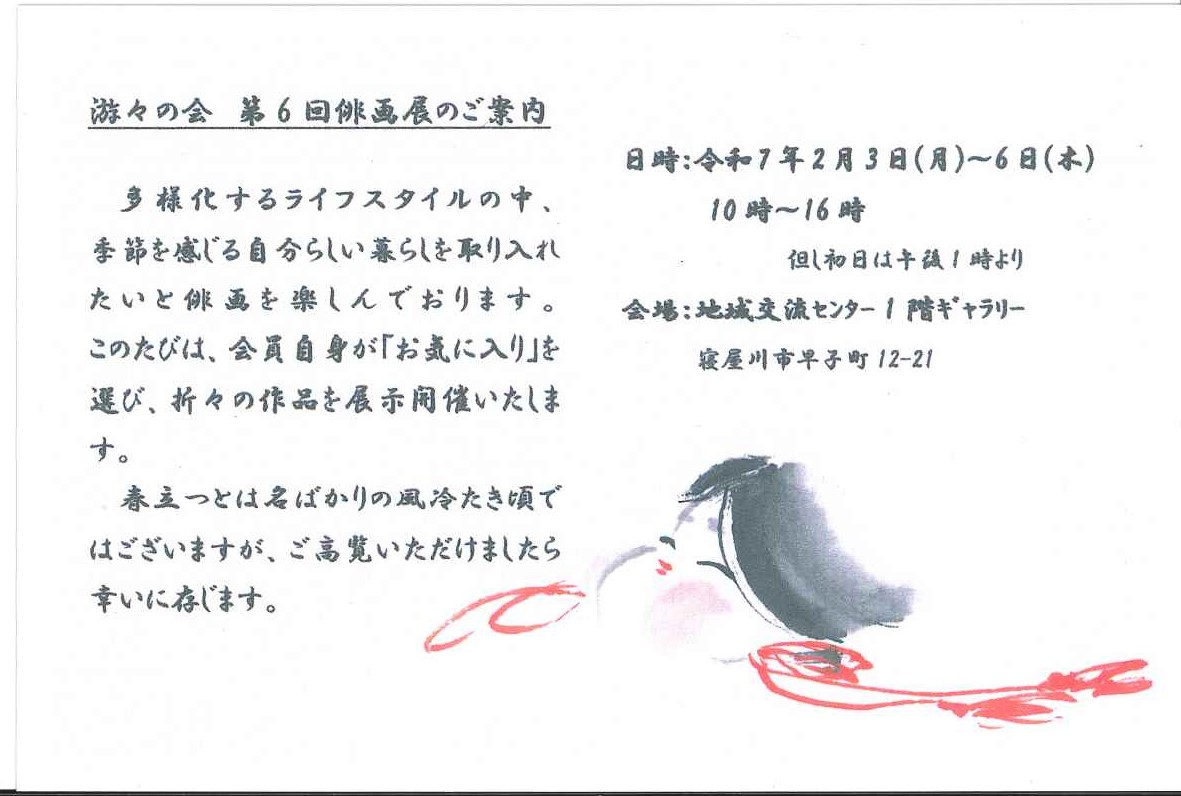 游々の会　第6回俳画展のご案内
多様化するライフスタイルの中、
季節を感じる自分らしい暮らしを取り入れ
たいと俳画を楽しんでおります。
このたびは、会員自身が「お気に入り」を
選び、折々の作品を展示開催いたしま
す。
春立つとは名ばかりの風冷たき頃で
はございますが、ご高覧いただけましたら
幸いに存じます。
日時:令和7年2月3日(月)～6日(木)
10時～16時
但し初日は午後1時より
会場:地域交流センター1階ギャラリー
寝屋川市早子町12-21